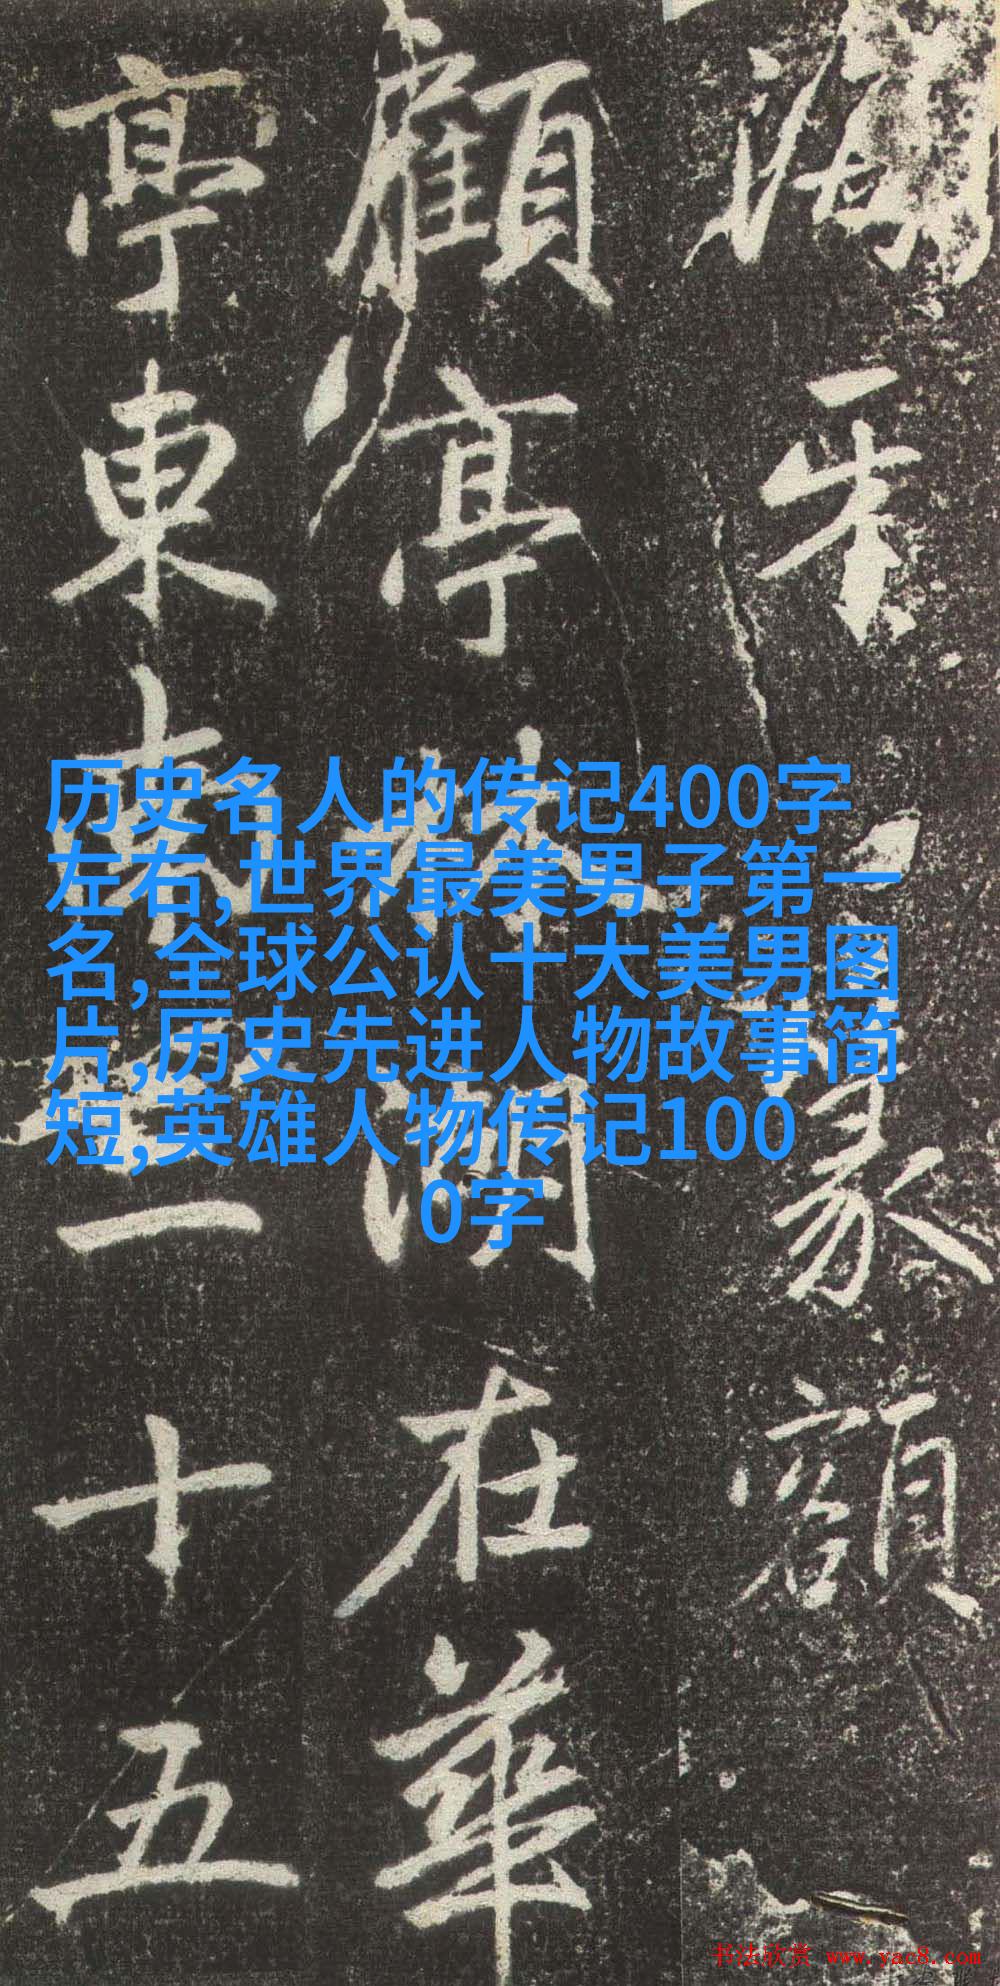 篆額
顧亭林湖在華
亭東南三十五
历史名人的传记400字
左右,世界最美男子第一
名,全球公认十大美男图
片,历史先进人物故事简
短,英雄人物传记100
0字
书法欣赏 www.yac8.com